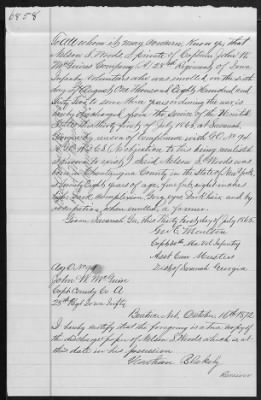 6858
To All whom it may concern: Know ye, that
Nelson S. Woods a private of Captain John W.
McGuires Company (A) 28th Regiment of Iowa
Infantry Volunteers who was enrolled on the sixth
day of August One Thousand Eighty Hundred and
Sixty two to serve three years or during the war, is
hereby discharged from the Service of the United
States this thirty first of July 1865, at Savannah
Georgia by reason of compliance with
(No objection to his being reenlisted
is known to exist) Said Nelson S. Woods was
born in Chautauqua County in the State of New York,
is twenty Eight years of age, five feet eight inches
high, Dark complexion, Grey eyes, Dark hair, and by
occupation, when enrolled, a farmer.
Given Savannah Ga. this Thirty first day of July 1865.
Geo. E. Moulton
Capt 30th Me Vol Infantry
Asst Com Musters
Dist of Savanah Georgia
John W. McGuire
Capt Comdg Co A
28th Regt Iowa Infty
Beatrice Neb. October 16th 1872
I hereby certify that the foregoing is a true copy of
the discharge paper of Nelson S. Woods which is at
this date in his possession
Nathan Blakely
Receiver